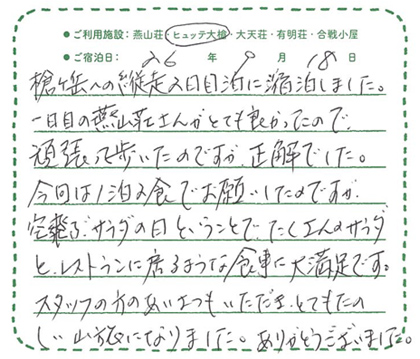 ●ご利用施設：燕山荘・ヒュッテ大槍・大天荘・有明荘・合戦小屋
●ご宿泊日： 26 年 9 月 18 日
槍ヶ岳への縦走2日目泊に宿泊しました。
一日目の燕山荘さんがとても良かったので、
頑張って歩いたのですが、正解でした。
今回は1泊2食でお願いしたのですが、
サラダの日ということで、たくさんのサラダ
と、レストランに居るような食事に大満足です。
スタッフの方のあいさつもいただき、とてもたの
しい山旅になりました。ありがとうございました。